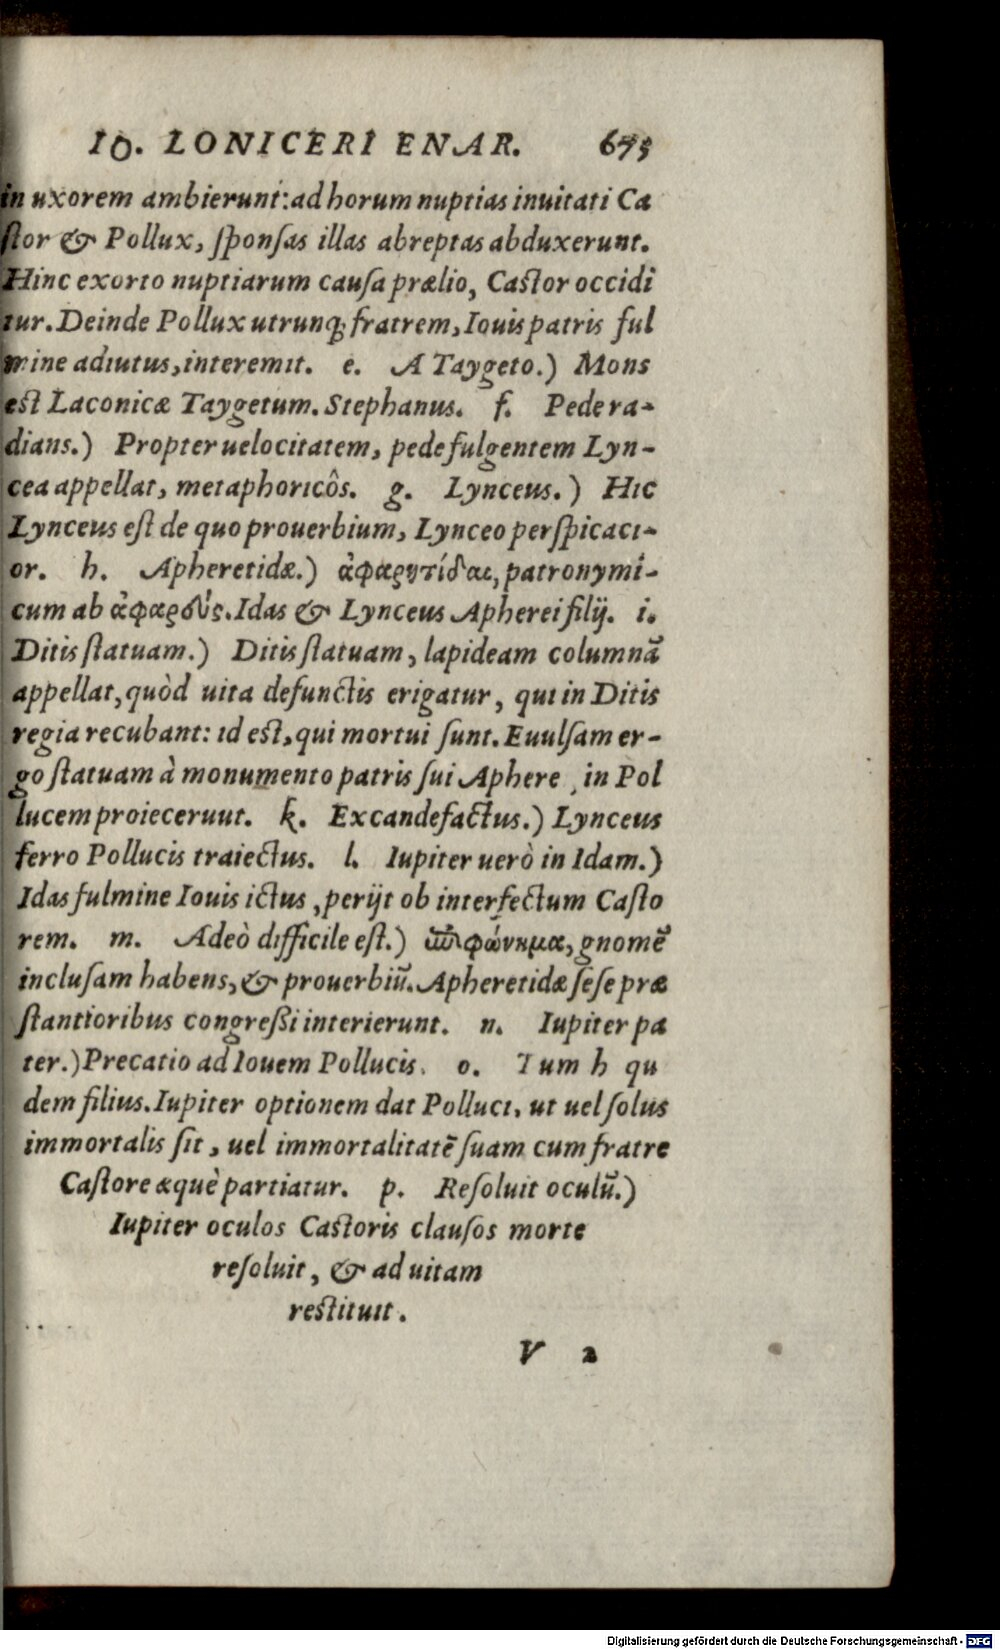 IO. LONICERI ENAR. 675
in uxorem ambierunt: ad horum nuptias inuitati Ca
ſtor & Pollux, ſponſas illas abreptas abduxerunt.
Hinc exorto nuptiarum cauſa prælio, Caſtor occidi
tur. Deinde Pollux utrunq; fratrem, Iouis patris ful
mine adiutus, interemit. e. A Taygeto.) Mons
eſt Laconicæ Taygetum. Stephanus. f. Pede ra-
dians.) Propter uelocitatem, pede fulgentem Lyn-
cea appellat, metaphoricôs. g. Lynceus.) Hic
Lynceus eſt de quo prouerbium, Lynceo perſpicaci-
or. h. Apheretidæ.) ἀφαρητίδαι, patronymi-
cum ab ἀφαρεύς. Idas & Lynceus Apherei filij. i.
Ditis ſtatuam.) Ditis ſtatuam, lapideam columnā
appellat, quòd uita defunctis erigatur, qui in Ditis
regia recubant: id eſt, qui mortui ſunt. Euulſam er-
go ſtatuam à monumento patris ſui Aphere, in Pol
lucem proiecerunt. k. Excandefactus.) Lynceus
ferro Pollucis traiectus. l. Iupiter uerò in Idam.)
Idas fulmine Iouis ictus, perijt ob interfectum Caſto
rem. m. Adeò difficile eſt.) ἐπιφώνημα, gnomē
incluſam habens, & prouerbiū. Apheretidæ ſeſe præ
ſtantioribus congreßi interierunt. n. Iupiter pa
ter.) Precatio ad Iouem Pollucis. o. Tum h qu
dem filius. Iupiter optionem dat Polluci, ut uel ſolus
immortalis ſit, uel immortalitatē ſuam cum fratre
Caſtore æquè partiatur. p. Reſoluit oculū.)
Iupiter oculos Caſtoris clauſos morte
reſoluit, & ad uitam
reſtituit.
V 2
Digitalisierung gefördert durch die Deutsche Forschungsgemeinschaft - DFG